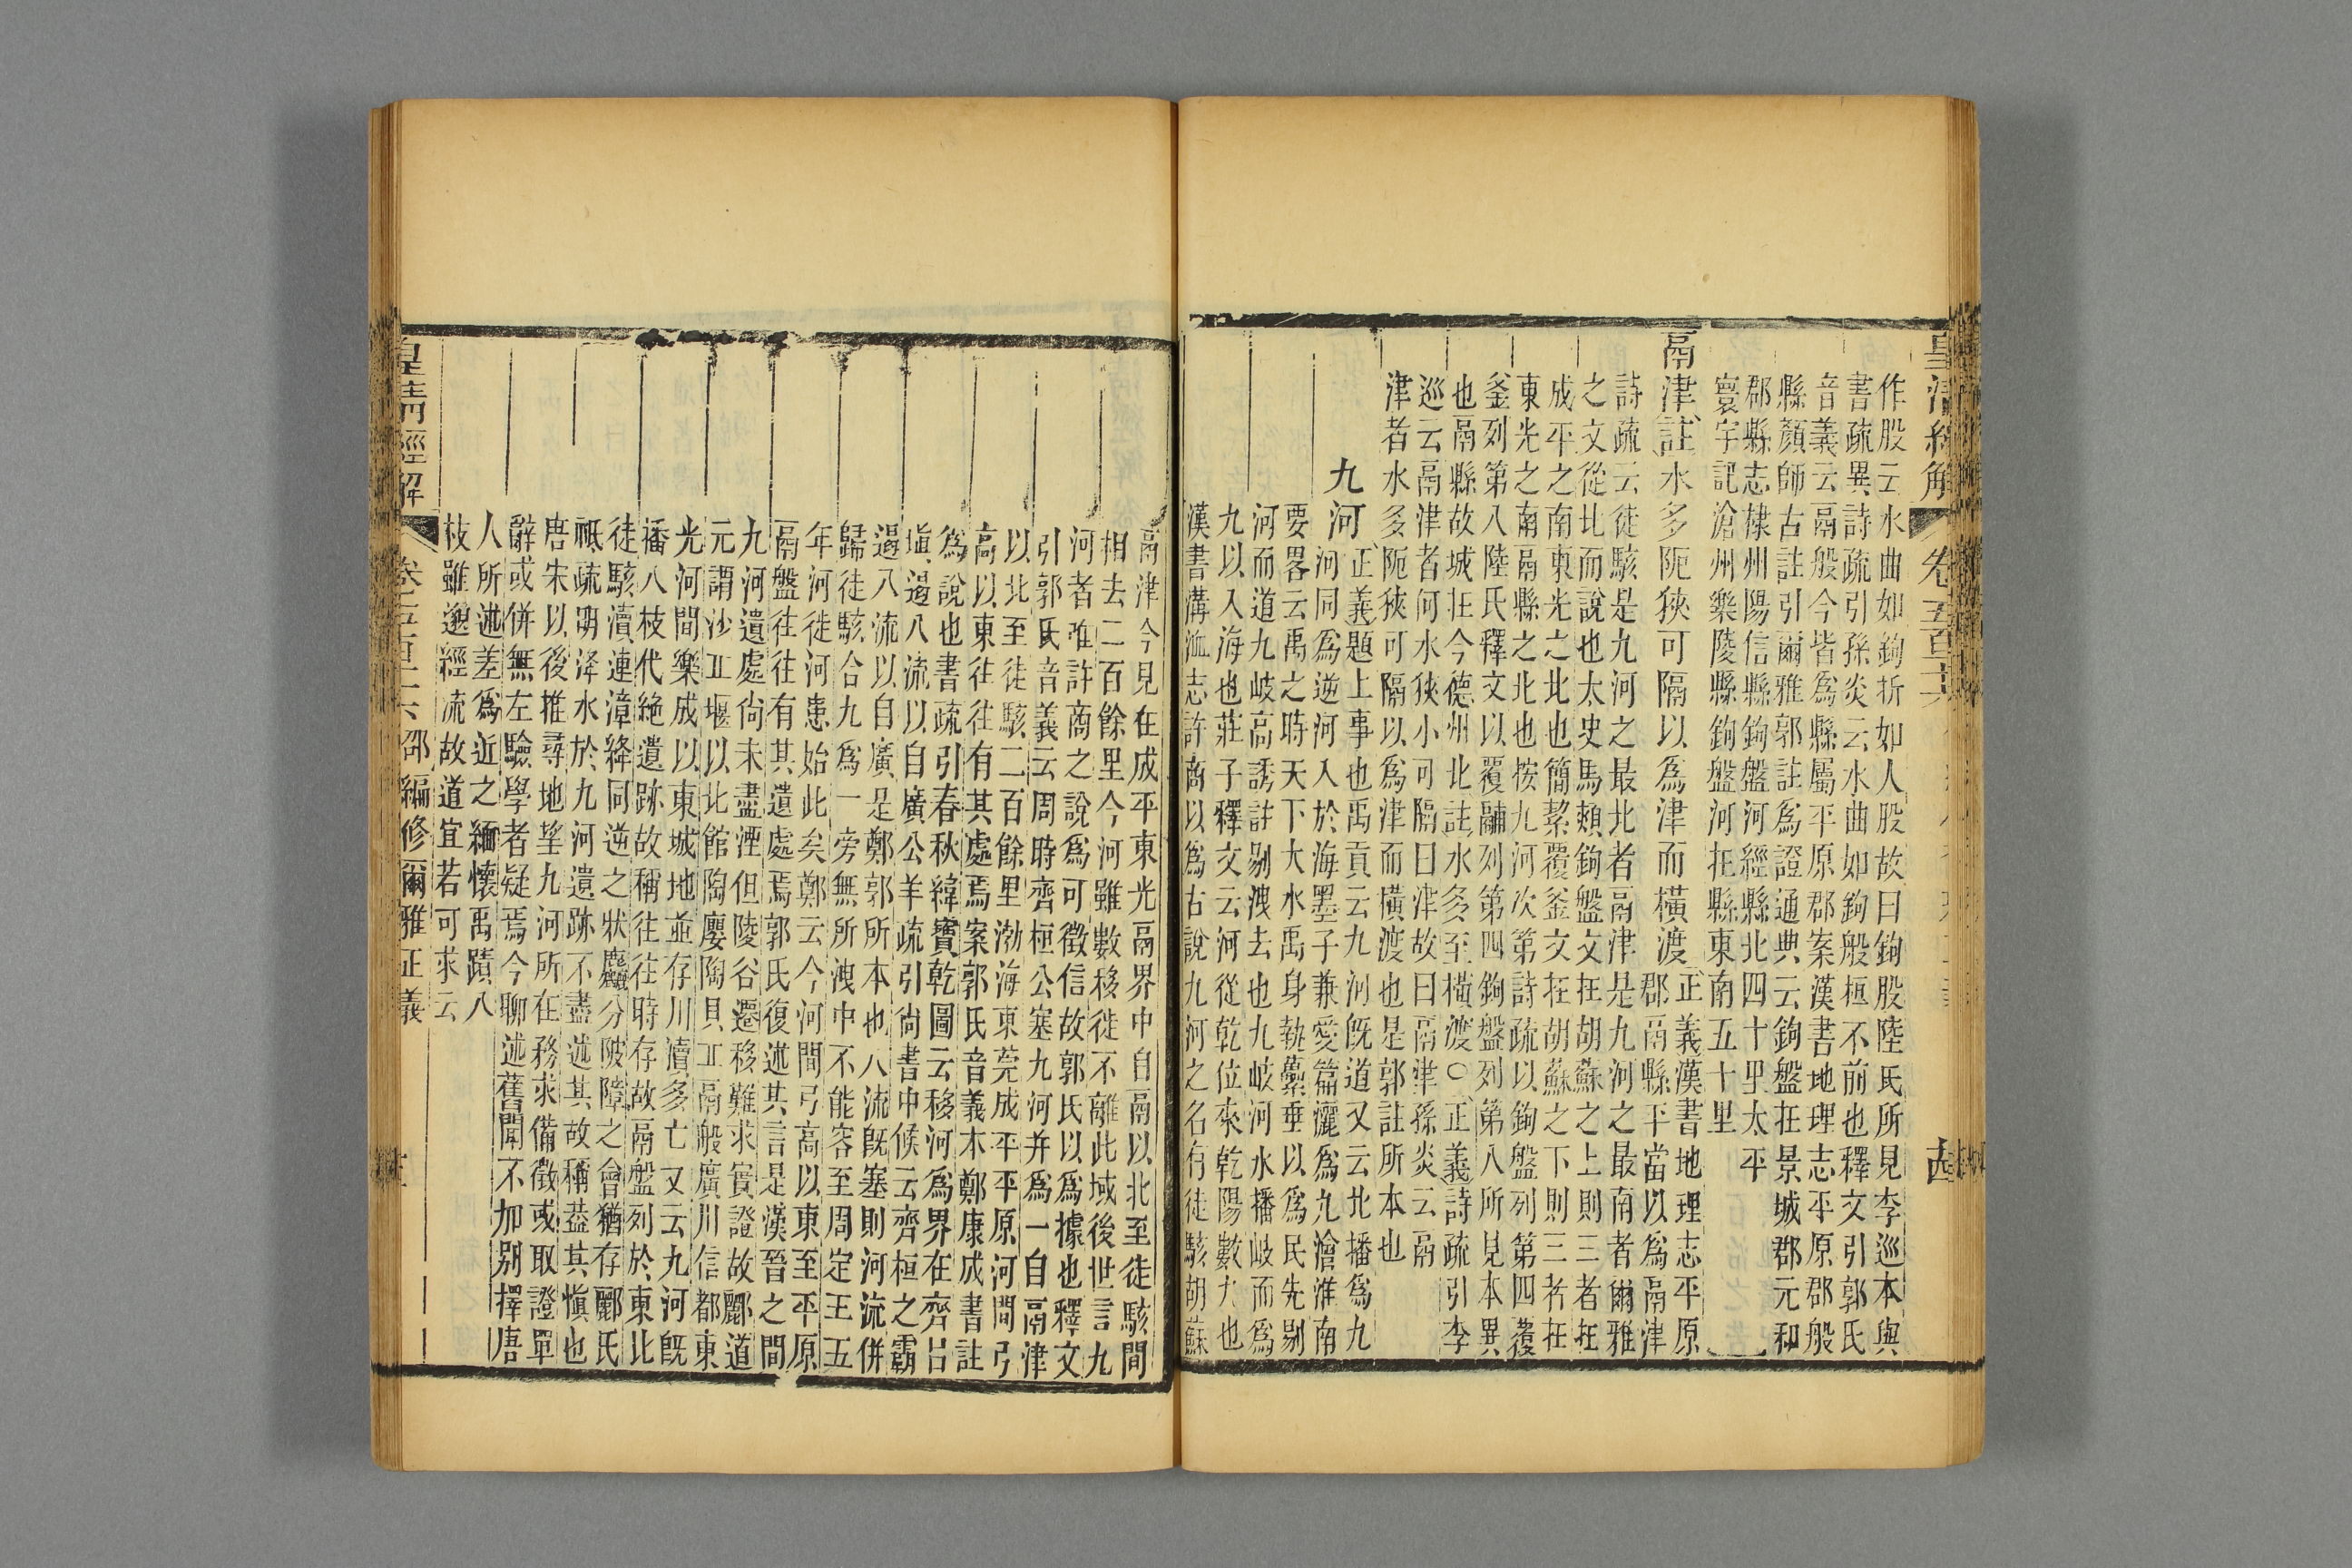 皇清經解 卷五百十六
作股云水曲如鉤折如人股故曰鉤股陸氏所見李巡本與
書疏異詩疏引孫炎云水曲如鉤般桓不前也釋文引郭氏
音義云鬲般今皆爲縣屬平原郡案漢書地理志平原郡般
縣顏師古註引爾雅郭註爲證通典云鉤盤在景城郡元和
郡縣志棣州陽信縣鉤盤河經縣北四十里太平
寰宇記滄州樂陵縣鉤盤河在縣東南五十里
鬲津註水多阨狹可隔以爲津而橫渡
正義漢書地理志平原
郡鬲縣平當以爲鬲津
詩疏云徒駭是九河之最北者鬲津是九河之最南者爾雅
之文從北而說也太史馬頰鉤盤文在胡蘇之上則三者在
成平之南東光之北也簡絜覆釜文在胡蘇之下則三者在
東光之南鬲縣之北也按九河次第詩疏以鉤盤列第四覆
釜列第八陸氏釋文以覆鬴列第四鉤盤列第八所見本異
也鬲縣故城在今德州北註水多至橫渡○正義詩疏引李
巡云鬲津者河水狹小可隔曰津故曰鬲津孫炎云鬲
津者水多阨狹可隔以爲津而橫渡也是郭註所本也
九河
正義題上事也禹貢云九河旣道又云北播爲九
河同爲逆河入於海墨子兼愛篇灑爲九澮淮南
要畧云禹之時天下大水禹身執虆垂以爲民先剔
河而道九岐高誘註剔洩去也九岐河水播岐而爲
九以入海也莊子釋文云河從乾位來乾陽數九也
漢書溝洫志許商以爲古說九河之名有徒駭胡蘇
鬲津今見在成平東光鬲界中自鬲以北至徒駭間
相去二百餘里今河雖數移徙不離此域後世言九
河者唯許商之說爲可徵信故郭氏以爲據也釋文
引郭氏音義云周時齊桓公塞九河并爲一自鬲津
以北至徒駭二百餘里渤海東莞成平平原河間弓
高以東往往有其處焉案郭氏音義本鄭康成書註
爲說也書疏引春秋緯寶乾圖云移河爲界在齊呂
塡遏八流以自廣公羊疏引尙書中候云齊桓之霸
遏八流以自廣是鄭郭所本也八流旣塞則河流併
歸徒駭合九爲一旁無所洩中不能容至周定王五
年河徙河患始此矣鄭云今河間弓高以東至平原
鬲盤往往有其遺處焉郭氏復述其言是漢晉之間
九河遺處尙未盡湮但陵谷遷移難求實證故酈道
元謂沙丘堰以北館陶廮陶貝丘鬲般廣川信都東
光河間樂成以東城地並存川瀆多亡又云九河旣
播八枝代絕遺跡故稱往往時存故鬲盤列於東北
徒駭瀆連漳絳同逆之狀麤分陂障之會猶存酈氏
祇疏明洚水於九河遺跡不盡述其故稱葢其愼也
唐宋以後推尋地望九河所在務求備徵或取證單
辭或併無左驗學者疑焉今聊述舊聞不加別擇唐
人所述差爲近之緬懷禹蹟八
枝雖邈經流故道宜若可求云
皇清經解 卷五百十六 邵編修爾雅正義